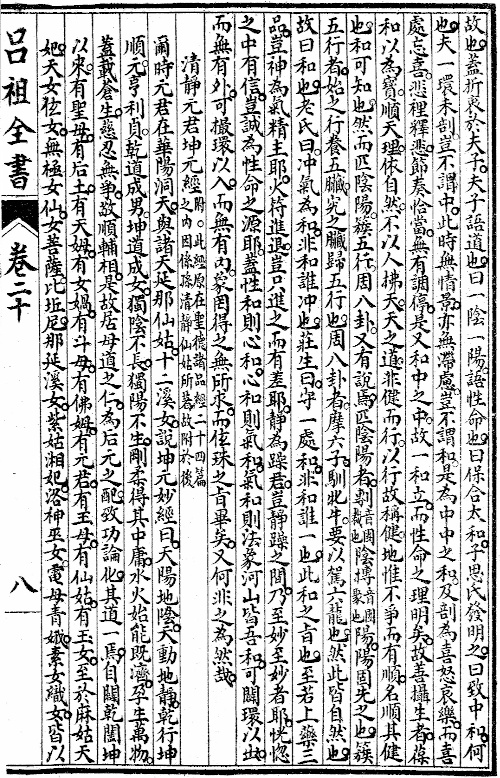 故也蓋折衷於夫子夫子語道也曰一陰一陽語性命也曰保合太和子思氏發明之曰致中和何
也夫一環未剖豈不謂中此時無情景亦無滯慮豈不謂和是為中中之和及剖為喜怒哀樂而喜
處忘喜悲裡釋悲節奏恰當無有調停是又和中之中故一和立而性命之理明矣故善攝生者葆
和以為寶順天理依自然不以人拂天天之道非健而行以行故稱健地惟不爭而有順名順其健
也和可知也然而匹陰陽簇五行周八卦又有說焉匹陰陽者剸音團截也陰摶音團聚也陽陽固先之也簇
五行者始之行養五臟究之臟歸五行也周八卦者摩六子馴牝牛要以駕六龍也然此皆自然也
故曰和也老氏曰冲氣為和非和誰冲也莊生曰守一處和非和誰一也此和之旨也至若上藥三
品豈神為氣精主耶火符進退豈只進之而有差耶靜為躁君豈靜躁之間乃至妙至妙者耶恍惚
之中有信豈誠為性命之源耶蓋性和則心和心和則氣和氣和則法象河山皆吾和可闢環以出
而無有外可撮環以入而無有內象罔得之無所求而玄珠之旨畢矣又何非之為然哉
清靜元君坤元經附。此經原在聖德諸品經二十四篇之內因係孫清靜仙姑所著故附於後
爾時元君在華陽洞天與諸天延那仙姑十二溪女說坤元妙經曰天陽地陰天動地靜乾行坤
順元亨利貞乾道成男坤道成女獨陰不長獨陽不生剛柔得其中庸水火始能既濟孕生萬物
蓋載蒼生慈忍無爭敬順輔相是故居母道之仁為后元之配致功論化其道一焉自闢乾闔坤
以來有聖母有后土有天姆有女媧有斗母有佛姆有元君有玉母有仙姑有玉女至於麻姑天
妃天女玄女無極女仙女菩薩比坵尼那延溪女紫姑湘妃洛神巫女電母青孅素女織女皆以
呂祖全書
卷二十
八